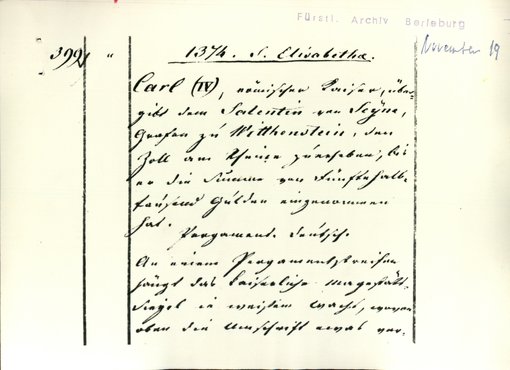 Fürstl. Archiv Berleburg
November 19
392 " 1374. S. Elisabethæ.
Carl (IV), römischer Kaiser, über-
gibt dem Salentin von Seÿne,
Grafen zu Witthenstein, den
Zoll am Rheine zu erheben, bis
er die Summe von Fünftehalb-
tausend Gülden eingenommen
hat.
Pergament. Deutsch.
An einem Pergamentstreifen
hängt das Kaiserliche Magestätt-
Siegel in weißem Wachs, wovon
oben die Umschrift etwas ver-